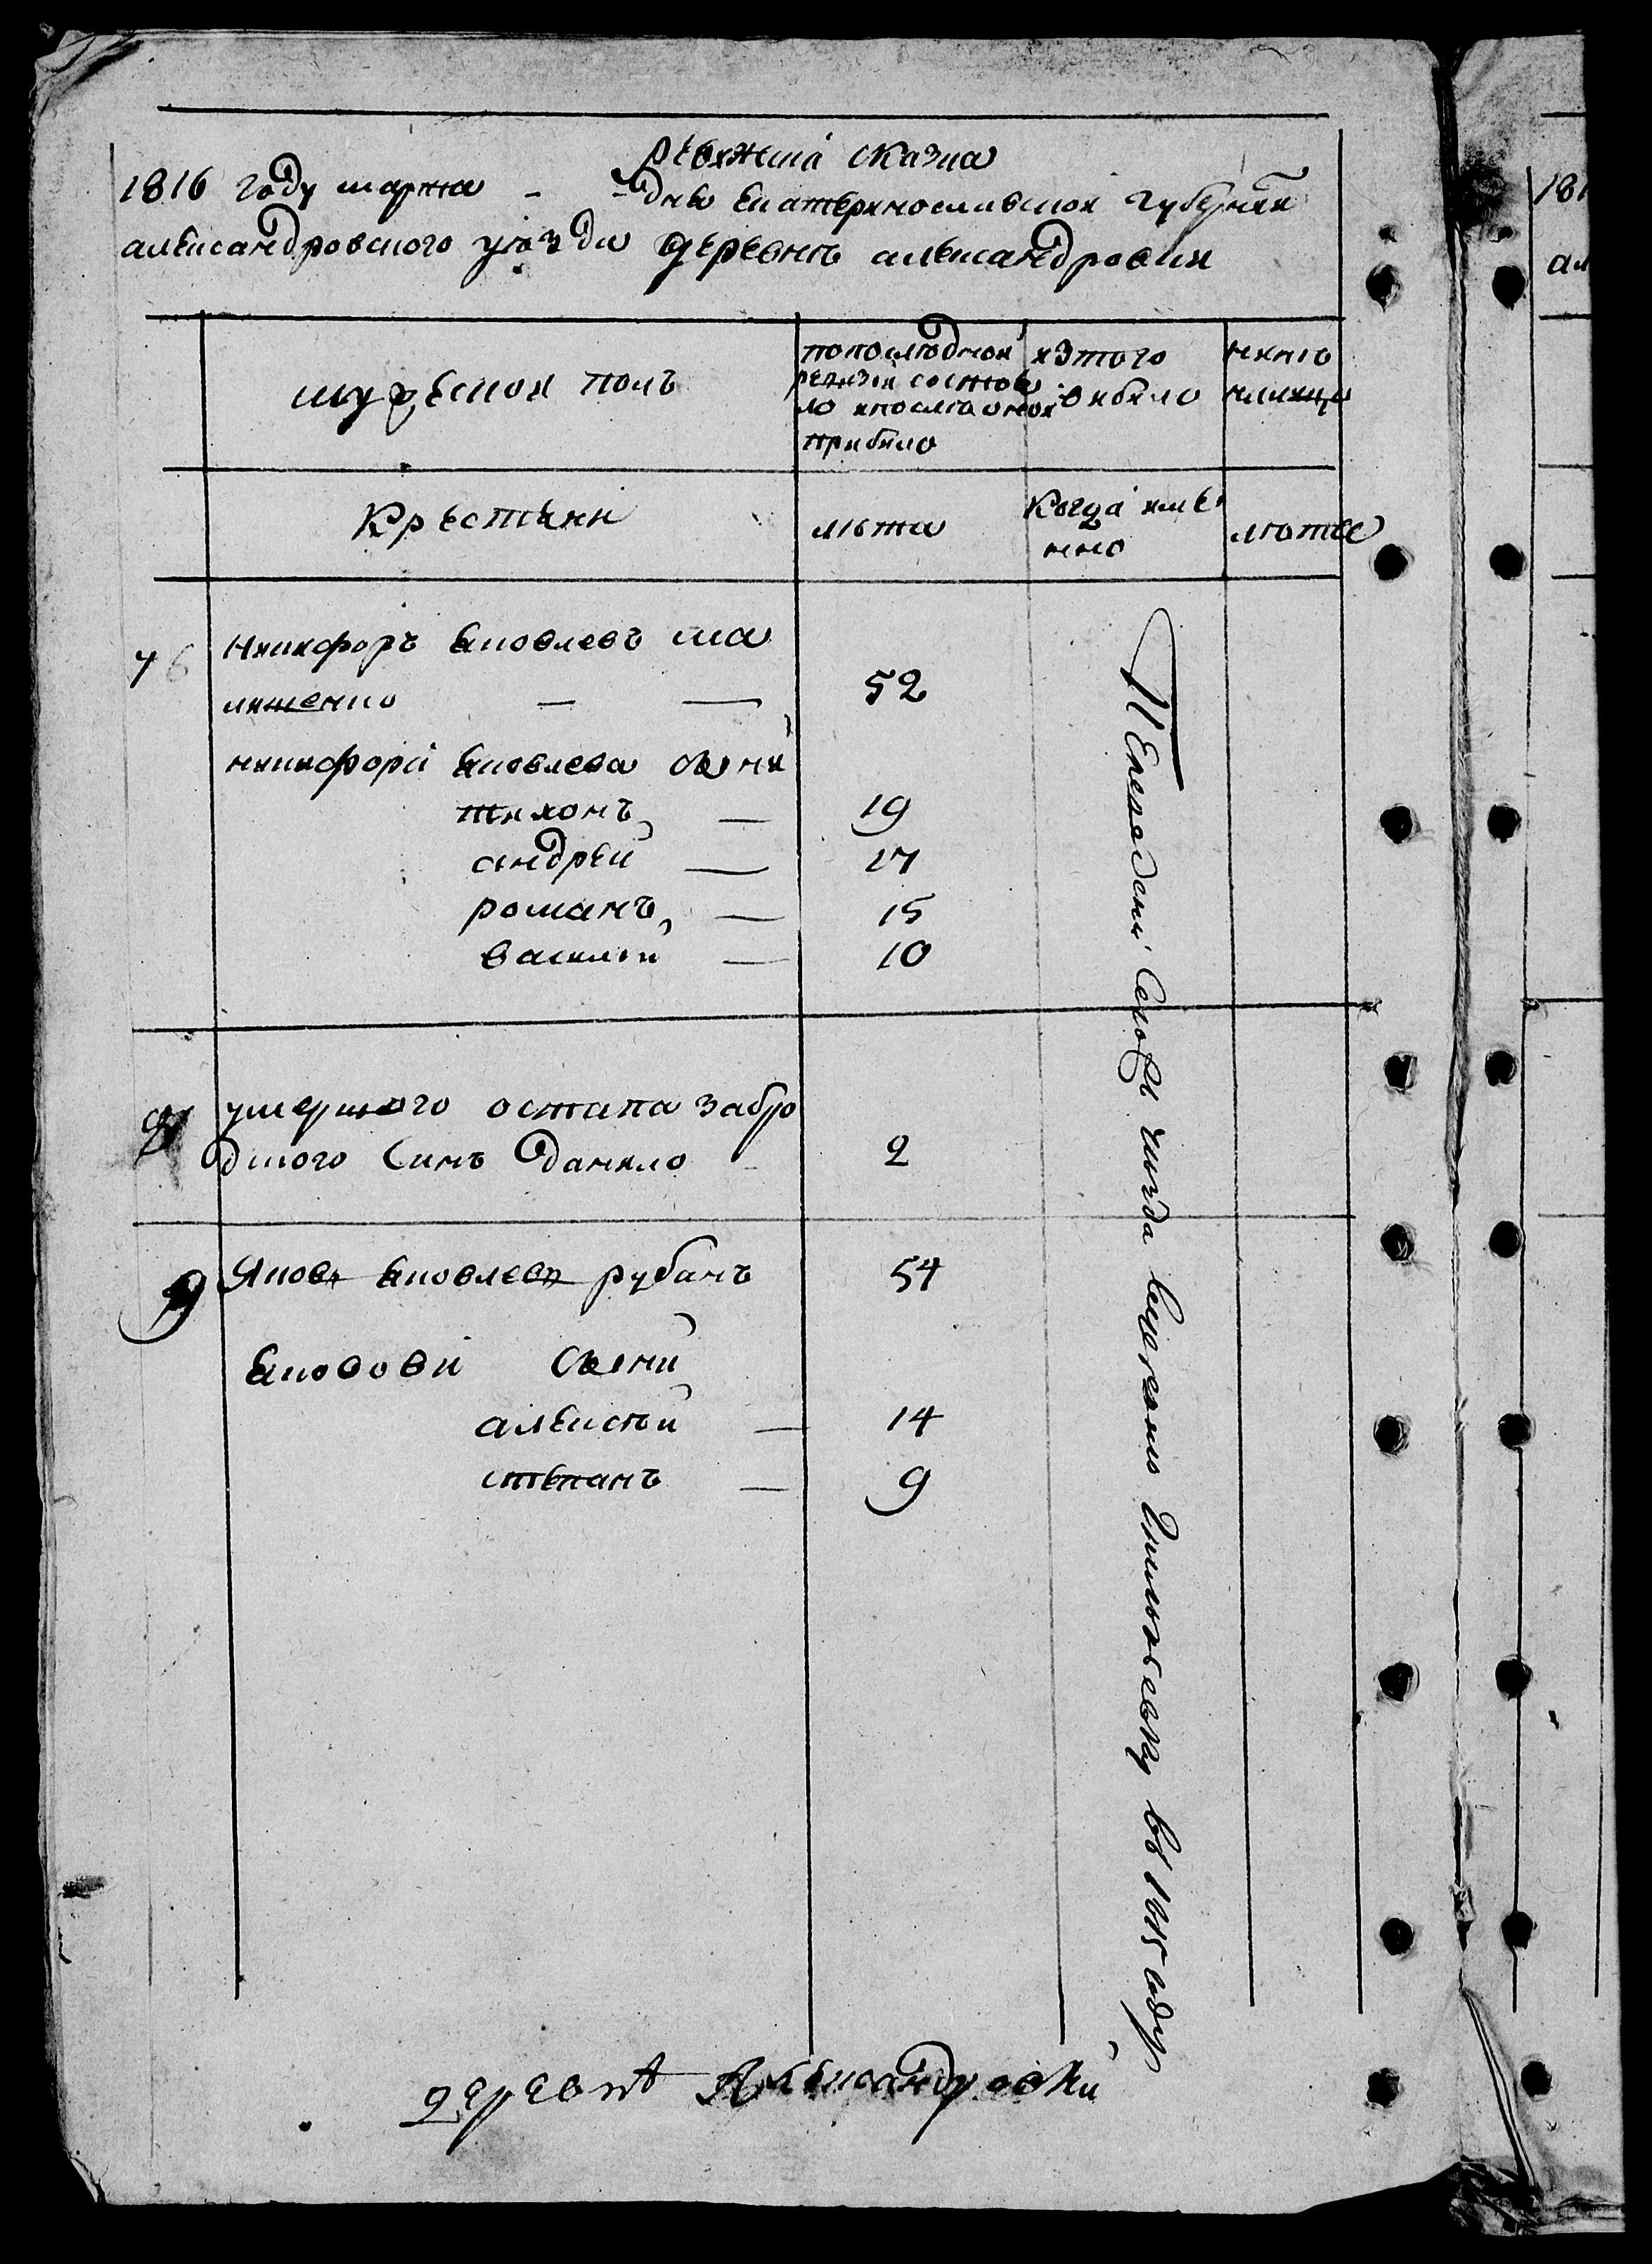 ревижская сказка
1816 году марта — дня Екатеринославской губернии
александровского уѣзда деревнѣ александровки
мужеской полъ
попослѣдной
ревизіи состоя
ло ипослѣоной
прибило
изтого
вибило
нинѣ
налицо
Крестяни
лѣта
Когда име
нно
лѣта
7
никифоръ Яковлевъ ма
лишенко — — 52
никифора Яковлева сыни
тихонъ — 19
андрей — 17
романъ — 15
василій — 10
умершого остапа забро
дского Синъ данило 2
9
Яковъ Яковлевъ рубанъ 54
Яковови сыни
алексѣй — 14
степанъ — 9
въ 1815 году
деревнѣ Александровки
181
ал